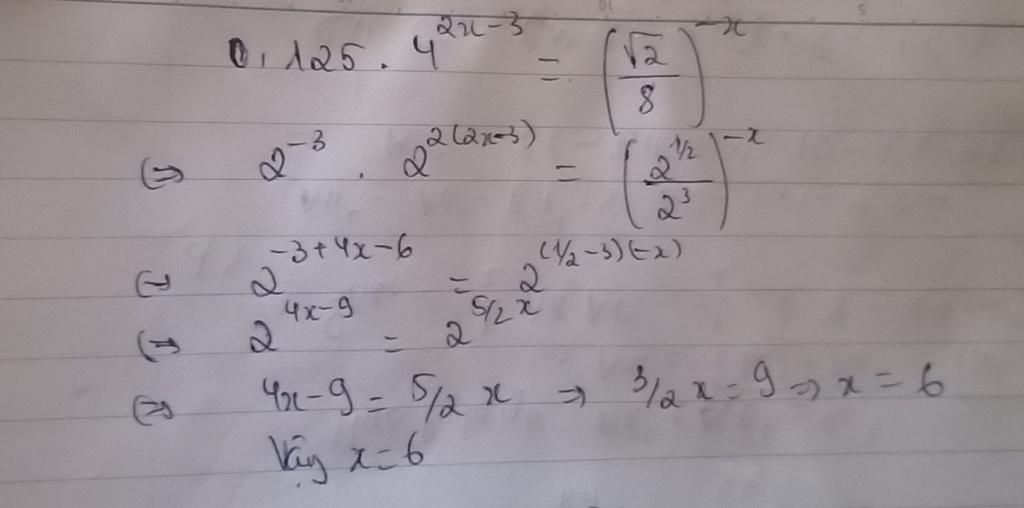 0,125 . 4^{2x-3} = (\frac{\sqrt{2}}{8})^{-x}
⇔ 2^{-3} . 2^{2(2x-3)} = (\frac{2^{1/2}}{2^3})^{-x}
⇔ 2^{-3+4x-6} = 2^{(1/2-3)(-x)}
⇔ 2^{4x-9} = 2^{5/2 x}
⇔ 4x-9 = 5/2 x ⇒ 3/2 x = 9 ⇒ x = 6
Vậy x = 6